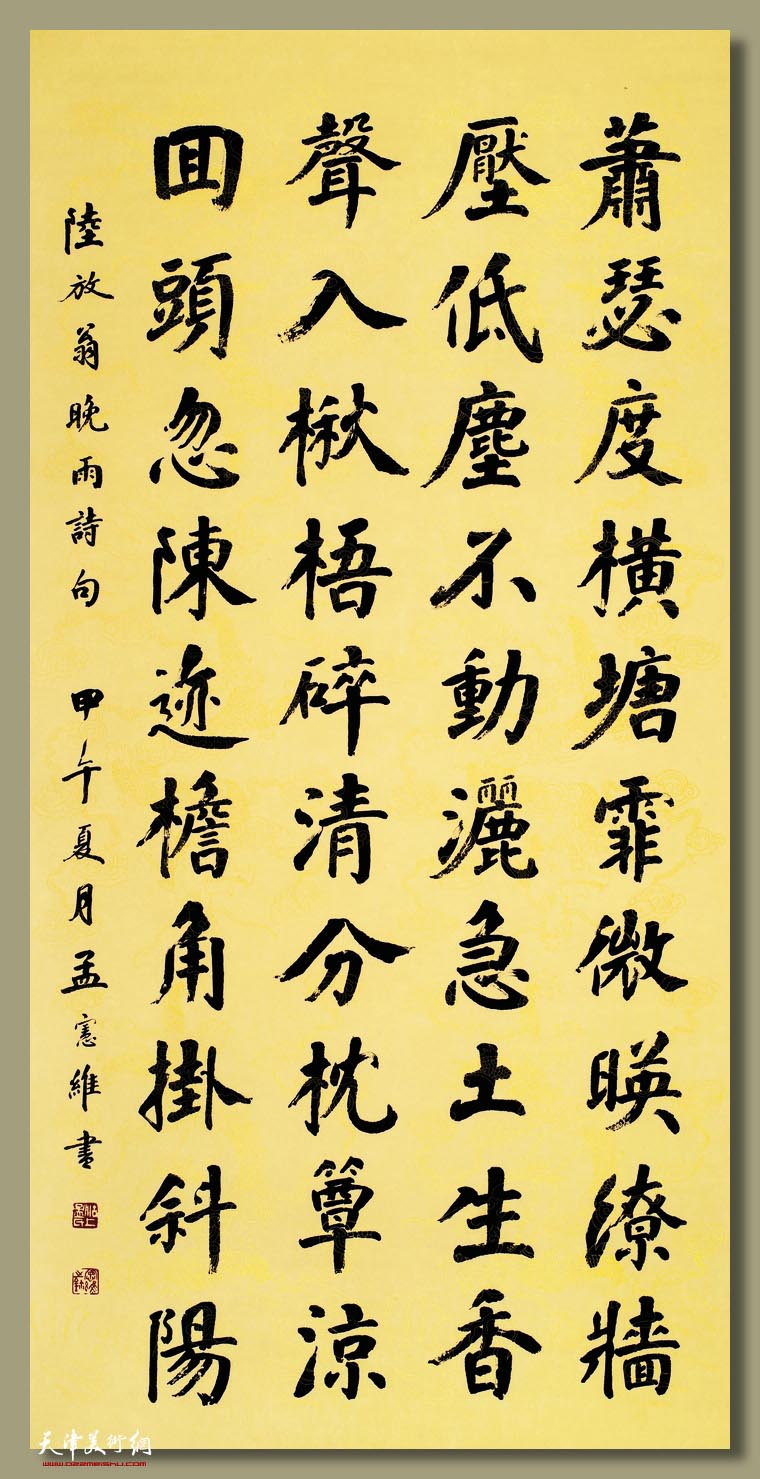 蕭瑟度橫塘霏微暎繚牆
壓低塵不動灑急土生香
聲入楸梧碎清分枕簟涼
囬頭忽陳迹檐角掛斜陽
陸放翁晚雨詩句 甲午夏月孟憲維書
天津美術網
www.022meishu.com